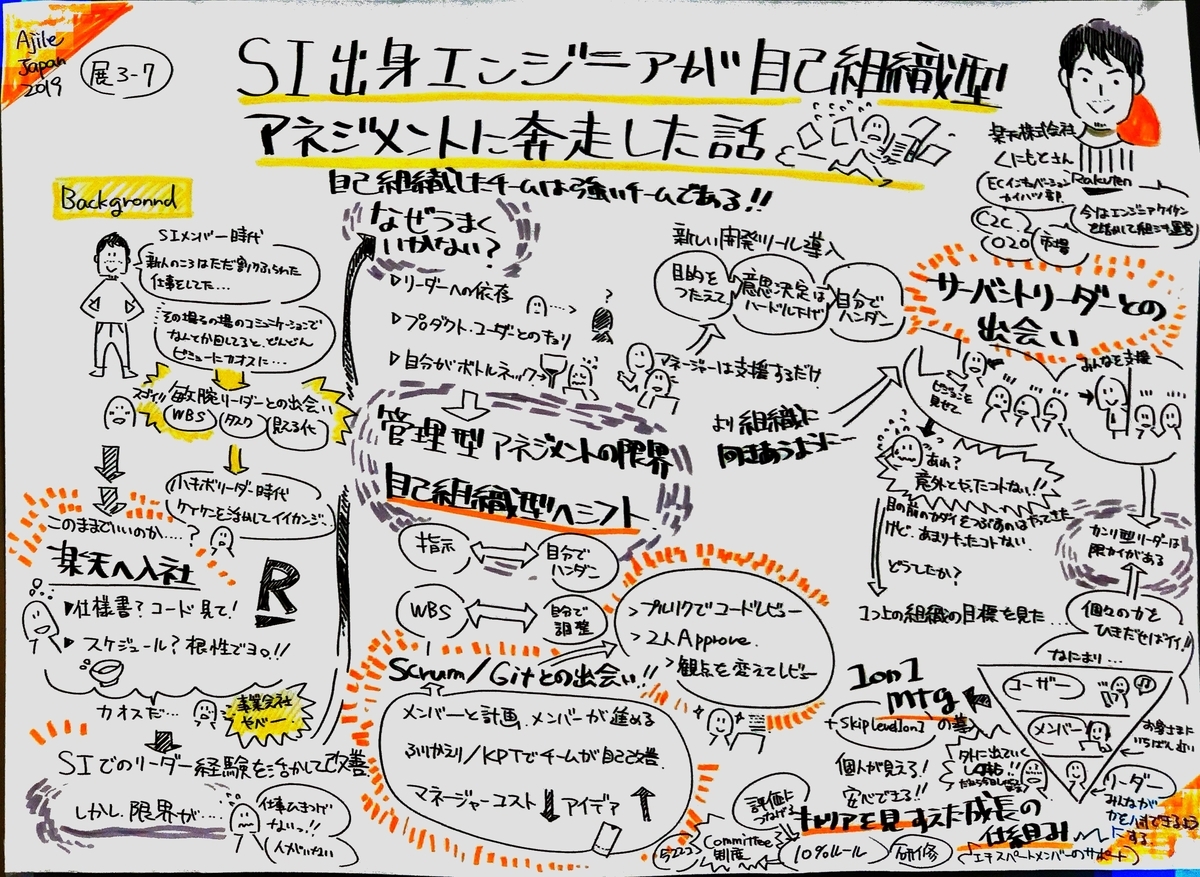 Ajile
Japan
2019
展3-7
SI出身エンジニアが自己組織型
マネジメントに奔走した話
楽天株式会社
くにもとさん
Rakuten
ECインキュベーション
カイハツ部
C2C
O2O
市場
自己組織したチームは強いチームである!!
Background
SIメンバー時代
新人のころはただ割りふられた
仕事をしてた…
その場その場のコミュニケーションで
なんとか回してると、どんどん
ビミョーにカオスに…
スゴイ!!
敏腕リーダーとの出会い
WBS
タスク
見える化
小キボリーダー時代
ケイケンを活かしてイイカンジ
このままでいいのか……?
楽天へ入社
R
仕様書?コード見て!
スケジュール?根性でヨロ!!
カオスだ…
事業会社
ヤベー
SIでのリーダー経験を活かして改善
しかし、限界が…
仕事ひきつげ
ないっ!!
人がいない
なぜうまく
いかない?
リーダーへの依存
プロダクト・ユーザとのキョリ
自分がボトルネック
管理型マネジメントの限界
自己組織型へシフト
指示
自分で
ハンダー
WBS
自分で
調整
Scrum/Gitとの出会い!!
メンバーと計画.メンバーが進める
ふりかえり/KPTでチームが自己改善.
マネージャーコスト
アイデア
プルリクでコードレビュー
2人Approve.
観点を変えてレビュー
新しい開発ツール導入
目的を
つたえて
意思決定は
ハードル下げ
自分で
ハンダー
マネージャーは支援するだけ
より組織に
向きあうように…
サーバントリーダーとの
出会い
みんなを支援
あれ?
意外とやったコトない!!
目の前のカダイをつぶすのはやってきた
けど、あまりやったコトない.
どうしたか?
1つ上の組織の目標を見た…
カンリ型リーダーは
限カイがある
個々の力を
ひきだせばイイ!!
なにより…
ユーザー
メンバー
リーダー
お客さまに
いちばん近い
みんなが
1on1
mtg
+SkipLevel1on1
個人が見える!
安心できる!!
キャリアを見すえた成長の
仕組み
評価に
つなげる
Committee
制度
10%ルール
研修
エキスパートメンバーのサポート